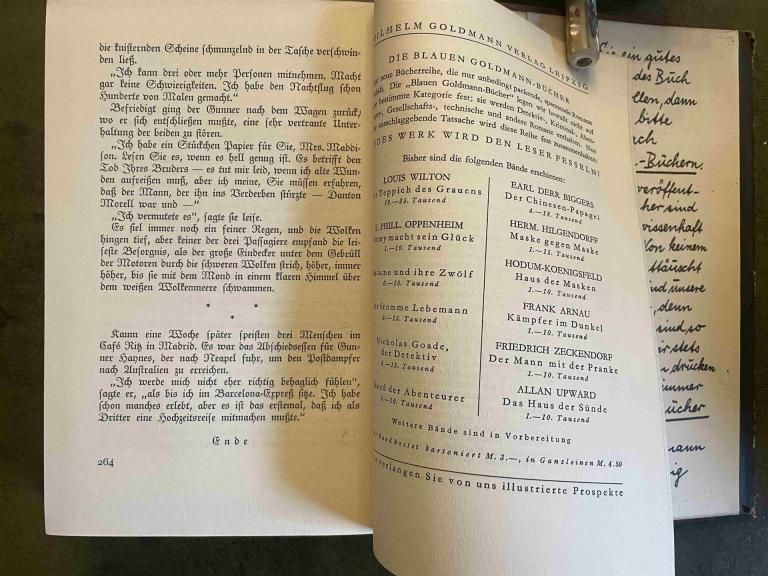 die knisternden Scheine schmunzelnd in der Tasche verschwin-
den ließ.
„Ich kann drei oder mehr Personen mitnehmen. Macht
gar keine Schwierigkeiten. Ich habe den Nachtflug schon
Hunderte von Malen gemacht.“
Befriedigt ging der Gunner nach dem Wagen zurück,
wo er sich entschließen mußte, eine sehr vertraute Unter-
haltung der beiden zu stören.
„Ich habe ein Stückchen Papier für Sie, Mrs. Maddi-
son. Lesen Sie es, wenn es hell genug ist. Es betrifft den
Tod Ihres Bruders — es tut mir leid, wenn ich alte Wun-
den aufreißen muß, aber ich meine, Sie müssen erfahren,
daß der Mann, der ihn ins Verderben stürzte — Danton
Morell war und —“
„Ich vermutete es“, sagte sie leise.
Es fiel immer noch ein feiner Regen, und die Wolken
hingen tief, aber keiner der drei Passagiere empfand die lei-
seste Besorgnis, als der große Eindecker unter dem Gebrüll
der Motoren durch die schweren Wolken strich, höher, immer
höher, bis sie mit dem Mond in einem klaren Himmel über
dem weißen Wolkenmeere schwammen.
* * *
Kaum eine Woche später speisten drei Menschen im
Café Ritz in Madrid. Es war das Abschiedsessen für Gun-
ner Haynes, der nach Neapel fuhr, um den Postdampfer
nach Australien zu erreichen.
„Ich werde mich nicht eher richtig behaglich fühlen“,
sagte er, „als bis ich im Barcelona-Expreß sitze. Ich habe
schon manches erlebt, aber es ist das erstemal, daß ich als
Dritter eine Hochzeitsreise mitmachen mußte.“
Ende
264
HELM GOLDMANN VERLAG LEIPZIG
DIE BLAUEN GOLDMANN-BÜCHER
neue Bücherreihe, die nur unbedingt packende, spannende Romane
Die „Blauen Goldmann-Bücher“ legen wir bewußt nicht auf
bestimmte Kategorie fest; sie werden Detektiv-, Kriminal-, Aben-
Gesellschafts-, technische und andere Romane enthalten. Nur
ausschlaggebende Tatsache wird diese Reihe fest zusammenhalten:
DES WERK WIRD DEN LESER FESSELN!
Bisher sind die folgenden Bände erschienen:
LOUIS WILTON
Teppich des Grauens
10.—25. Tausend
PHILL. OPPENHEIM
macht sein Glück
1.—10. Tausend
und ihre Zwölf
Tausend
fromme Lebemann
Tausend
Nicholas Goade,
der Detektiv
Tausend
der Abenteurer
1.—10. Tausend
EARL DERR BIGGERS
Der Chinesen-Papagei
Tausend
HERM. HILGENDORFF
Maske gegen Maske
1.—15. Tausend
HODUM-KOENIGSFELD
Haus der Masken
1.—10. Tausend
FRANK ARNAU
Kämpfer im Dunkel
1.—10. Tausend
FRIEDRICH ZECKENDORF
Der Mann mit der Pranke
1.—10. Tausend
ALLAN UPWARD
Das Haus der Sünde
1.—10. Tausend
Weitere Bände sind in Vorbereitung
Band kostet kartoniert M. 3.—, in Ganzleinen M. 4.50
verlangen Sie von uns illustrierte Prospekte
Sie ein gutes
des Buch
llen, dann
bitte
ach
-Büchern.
veröffent-
her sind
wissenhaft
Von keinem
ttäuscht
nd unsere
denn
sind so
stets
drücken
immer
ücher
mann
ig